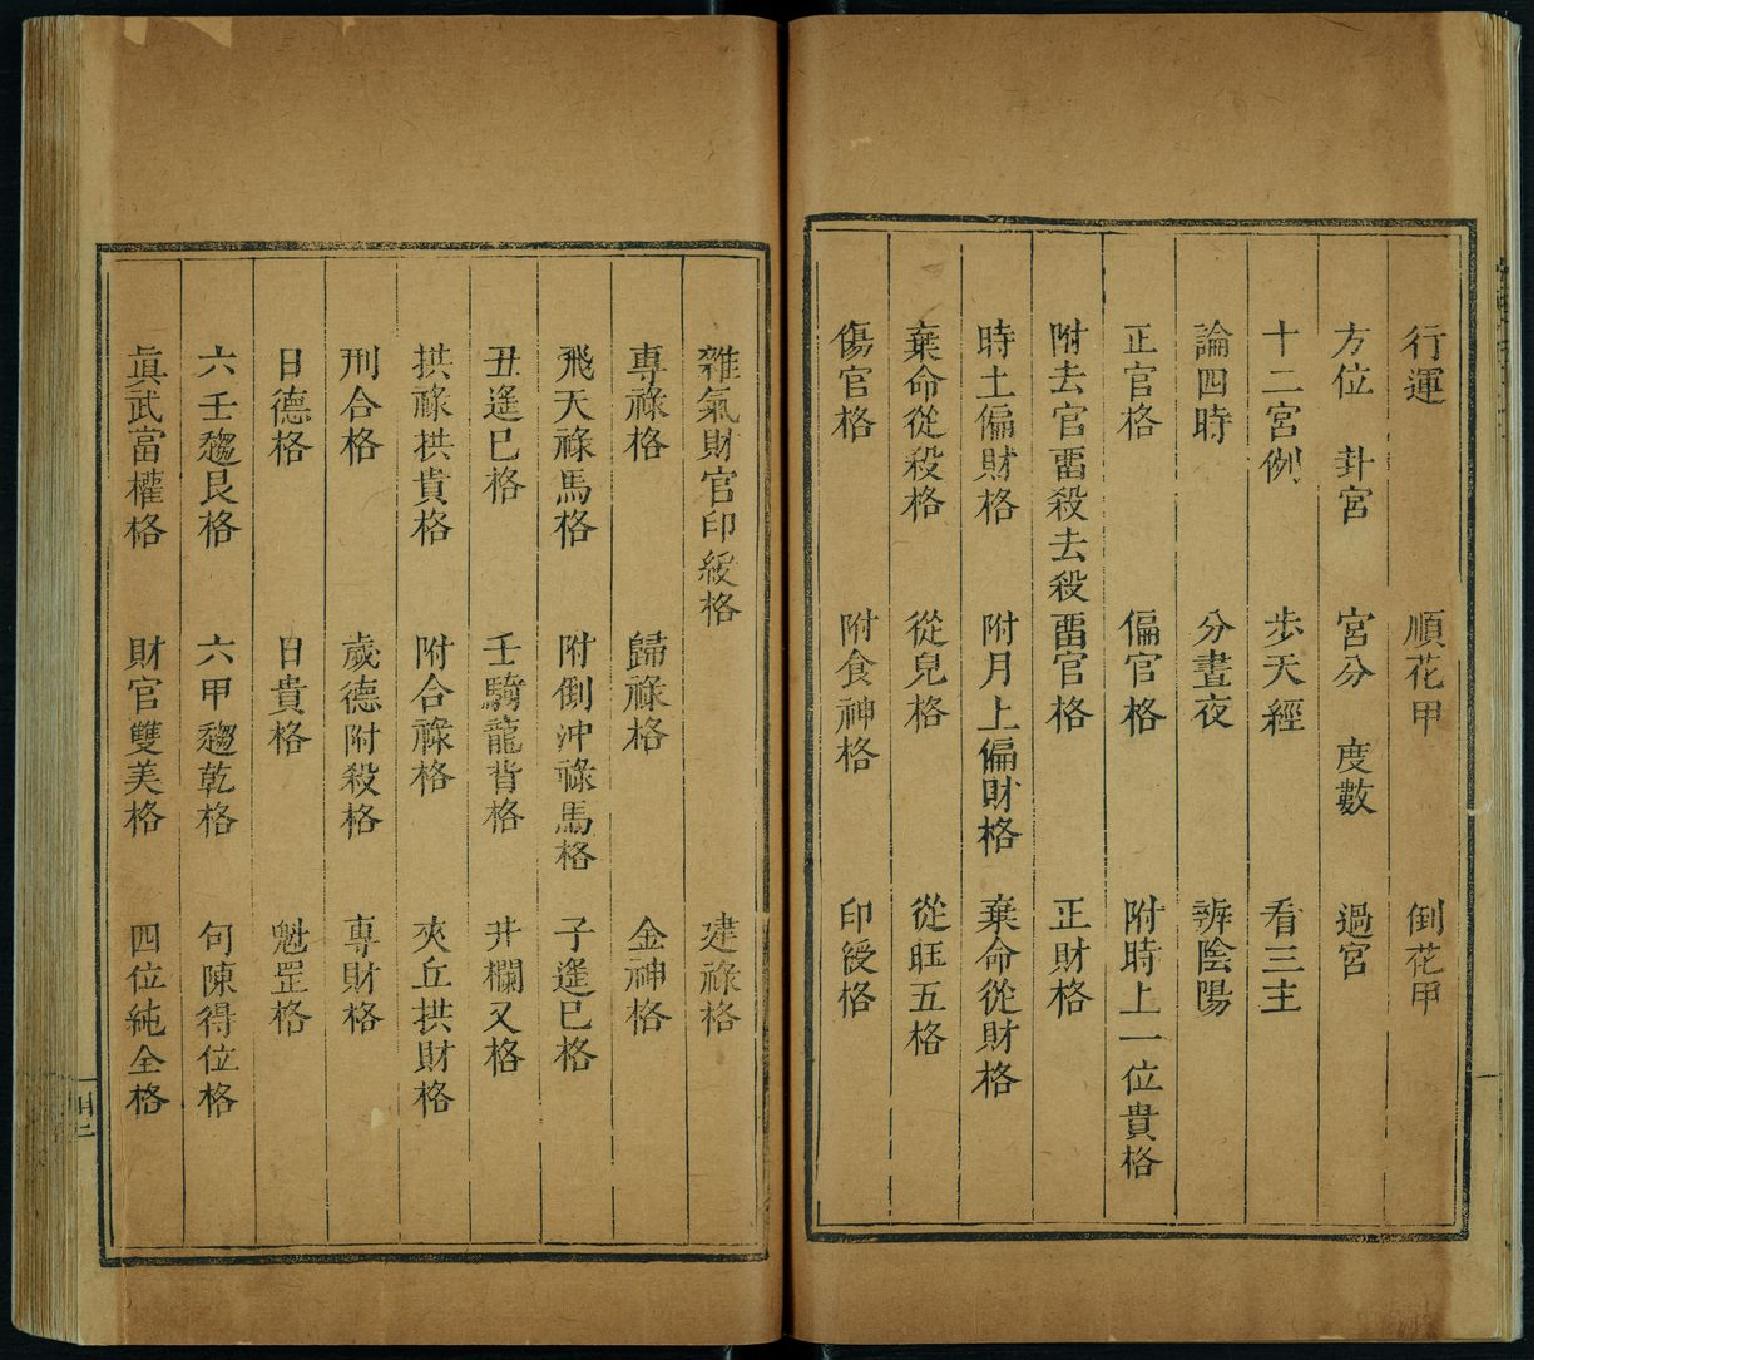 行運 順花甲 倒花甲
方位 卦宮 宮分 度數 過宮
十二宮例 步天經 看三主
論四時 分晝夜 辨陰陽
正官格 偏官格 附時上一位貴格
附去官畱殺去殺畱官格 正財格
時土偏財格 附月上偏財格 棄命從財格
棄命從殺格 從兒格 從旺五格
傷官格 附食神格 印綬格
雜氣財官印綬格 建祿格
專祿格 歸祿格 金神格
飛天祿馬格 附倒沖祿馬格 子遙巳格
丑遙巳格 壬騎龍背格 井欄又格
拱祿拱貴格 附合祿格 夾丘拱財格
刑合格 歲德附殺格 專財格
日德格 日貴格 魁罡格
六壬趨艮格 六甲趨乾格 句陳得位格
眞武富權格 財官雙美格 四位純全格